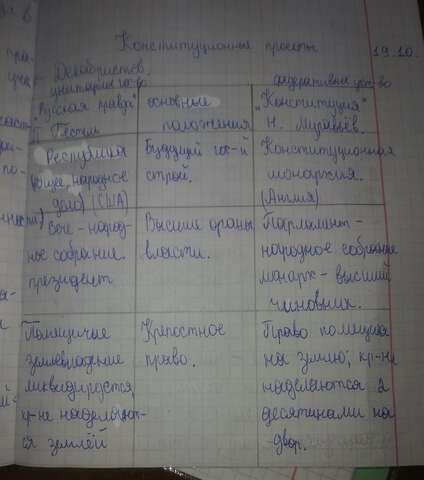 Конституционные проекты 19.10.
Декабристов.
унитарное гос-во
федеративное уст-во
"Русская правда" основные "Конституция"
П. Пестель положения Н. Муравьёв.
Республика Будущий гос-й Конституционная
(общее народное строй. монархия.
дело) (США) (Англия)
Вече - народ- Высшие органы Парламент -
ное собрание. власти. народное собрание
президент монарх - высший
чиновник.
Помещичье Крепостное Право помещика
землевладение право. на землю; кр-не
ликвидируется наделяются 2
кр-не наделяют- десятинами на
ся землёй двор.